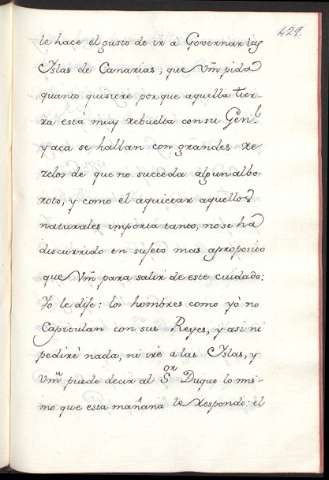 429.
le hace el gusto de ir à Governar las
Islas de Canarias; que Vm̃ pida
quanto quisiere por que aquella tier
ra esta muy rebuelta con su Gen.l
y aca se hallan con grandes re
zelos de que no suceda algun albo
roto, y como el aquietar aquellos
naturales importa tanto, no se ha
discurrido en sujeto mas aproposito
que Vm̃ para salir de este cuidado;
Yo le dije: los hombres como yò no
Capitulan con sus Reyes, y asi ni
pedirè nada, ni irè a las Islas, y
Vm̃ puede decir al S.or Duque lo mis
mo que esta mañana le respondi: el